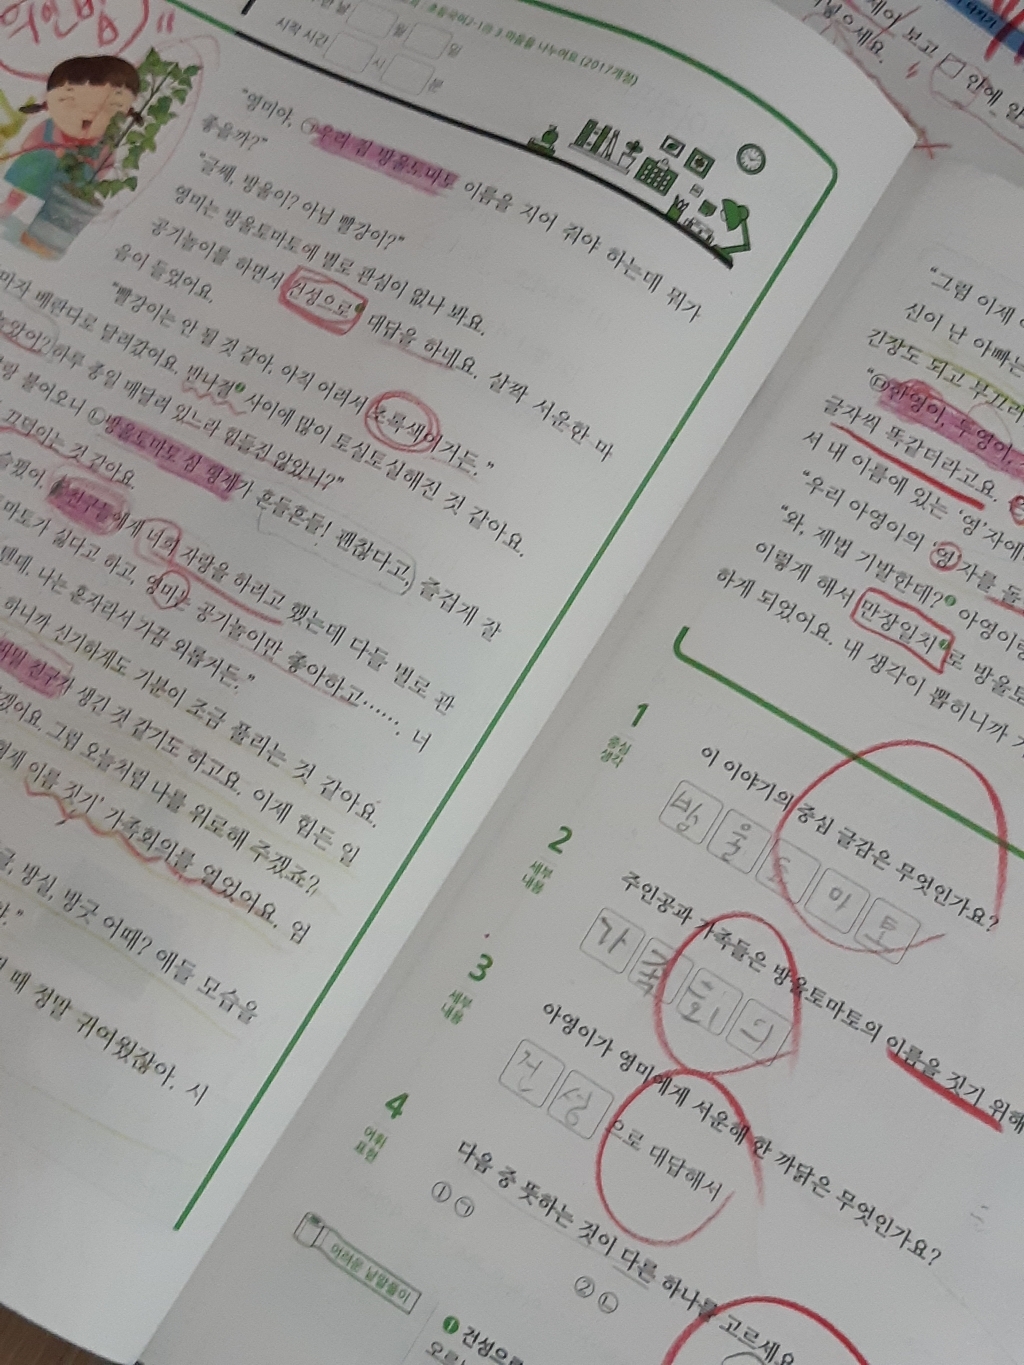 의인법)"
월 일
시작 시간 시 분
초등국어2-1㉯ 3.마음을 나누어요(2017개정)
"영미야, ㉠우리 집 방울토마토 이름을 지어 줘야 하는데 뭐가
좋을까?"
"글쎄, 방울이? 아님 빨강이?"
영미는 방울토마토에 별로 관심이 없나 봐요.
공기놀이를 하면서 건성으로❶ 대답을 하네요. 살짝 서운한 마
음이 들었어요.
"빨강이는 안 될 것 같아. 아직 어려서 초록색이거든."
마자 베란다로 달려갔어요. 반나절❷ 사이에 많이 토실토실해진 것 같아요.
하루 종일 매달려 있느라 힘들진 않았니?"
랑 불어오니 ㉡방울토마토 삼 형제가 흔들흔들! 괜찮다고, 즐겁게 잘
끄덕이는 것 같아요.
슬펐어. 친구들에게 너희 자랑을 하려고 했는데 다들 별로 관
마토가 싫다고 하고, 영미는 공기놀이만 좋아하고……. 너
텐데. 나는 혼자라서 가끔 외롭거든."
하니까 신기하게도 기분이 조금 풀리는 것 같아요.
친구가 생긴 것 같기도 하고요. 이제 힘든 일
겠어요. 그럼 오늘처럼 나를 위로해 주겠죠?
이름 짓기' 가족회의를 열었어요. 엄
방실, 방긋 어때? 애들 모습을
때 정말 귀여웠잖아. 시
보고 □ 안에 알
넣으세요.
"그럼 이제
신이 난 아빠는
긴장도 되고 부끄러
"㉢한영이, 두영이,
글자씩 똑같더라고요.
서 내 이름에 있는 '영'자에
"우리 아영이의 '영'자를 돌
"와, 제법 기발한데?❸ 아영이랑
이렇게 해서 만장일치❹로 방울토
하게 되었어요. 내 생각이 뽑히니까
1 중심 생각
이 이야기의 중심 글감은 무엇인가요?
방울토마토
2 세부 내용
주인공과 가족들은 방울토마토의 이름을 짓기 위해
가족회의
3 세부 내용
아영이가 영미에게 서운해 한 까닭은 무엇인가요?
건성으로 대답해서
4 어휘 표현
다음 중 뜻하는 것이 다른 하나를 고르세요
① ㉠
② ㉡
어려운 낱말풀이
❶ 건성으로